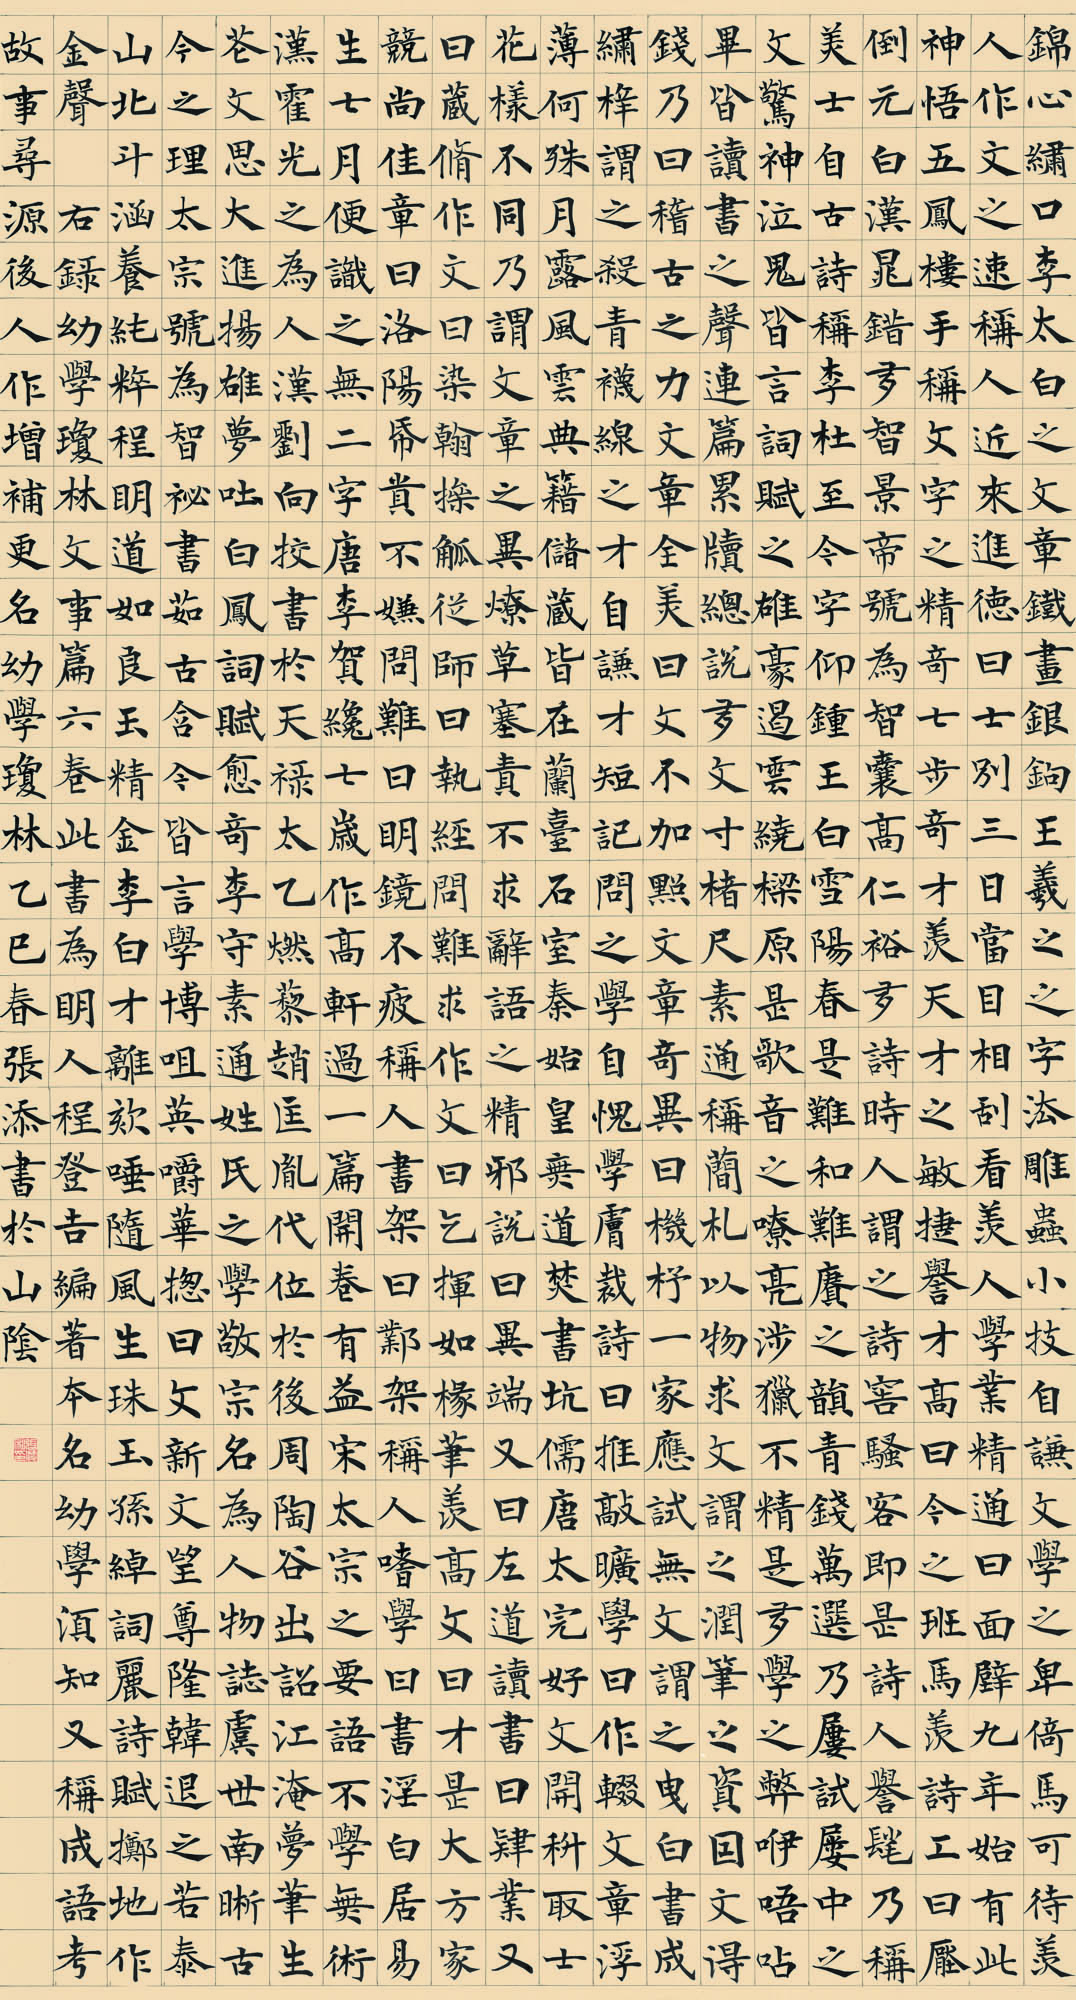 錦心繡口李太白之文章鐵畫銀鉤王羲之之字法雕蟲小技自謙文學之卑倚馬可待羨
人作文之速稱人近來進德曰士別三日當目相刮看羨人學業精通曰面壁九年始有此
神悟五鳳樓手稱文字之精奇七步奇才羨天才之敏捷譽才高曰今之班馬羨詩工曰壓
倒元白漢晁錯多智景帝號為智囊高仁裕多詩時人謂之詩窖騷客即是詩人譽髦乃稱
美士自古詩稱李杜至今字仰鍾王白雪陽春是難和難賡之韻青錢萬選乃屢試屢中之
文驚神泣鬼皆言詞賦之雄豪遏雲繞樑原是歌音之嘹亮涉獵不精是多學之弊咿唔呫
畢皆讀書之聲連篇累牘總說多文寸楮尺素通稱簡札以物求文謂之潤筆之資因文得
錢乃曰稽古之力文章全美曰文不加點文章奇異曰機杼一家應試無文謂之曳白書成
繡梓謂之殺青襪線之才自謙才短記問之學自愧學膚裁詩曰推敲曠學曰作輟文章浮
薄何殊月露風雲典籍儲藏皆在蘭臺石室秦始皇無道焚書坑儒唐太完好文開科取士
花樣不同乃謂文章之異燎草塞責不求辭語之精邪說曰異端又曰左道讀書曰肄業又
曰藏脩作文曰染翰操觚從師曰執經問難求作文曰乞揮如椽筆羨高文曰才是大方家
競尚佳章曰洛陽帋貴不嫌問難曰明鏡不疲稱人書架曰鄴架稱人嗜學曰書淫白居易
生七月便識之無二字唐李賀纔七歲作高軒過一篇開卷有益宋太宗之要語不學無術
漢霍光之為人漢劉向挍書於天祿太乙燃藜趙匡胤代位於後周陶谷出詔江淹夢筆生
芲文思大進揚雄夢吐白鳳詞賦愈奇李守素通姓氏之學敬宗名為人物誌虞世南晰古
今之理太宗號為智祕書茹古含今皆言學博咀英嚼華揔曰文新文望尊隆韓退之若泰
山北斗涵養純粹程明道如良玉精金李白才離欬唾隨風生珠玉孫綽詞麗詩賦擲地作
金聲 右錄幼學瓊林文事篇六卷此書為明人程登吉編著本名幼學湏知又稱成語考
故事尋源後人作增補更名幼學瓊林乙巳春張添書於山陰